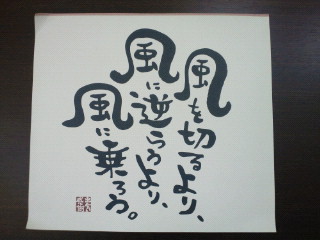 風を切るより、
風に逆らうより、
風に乗ろう。